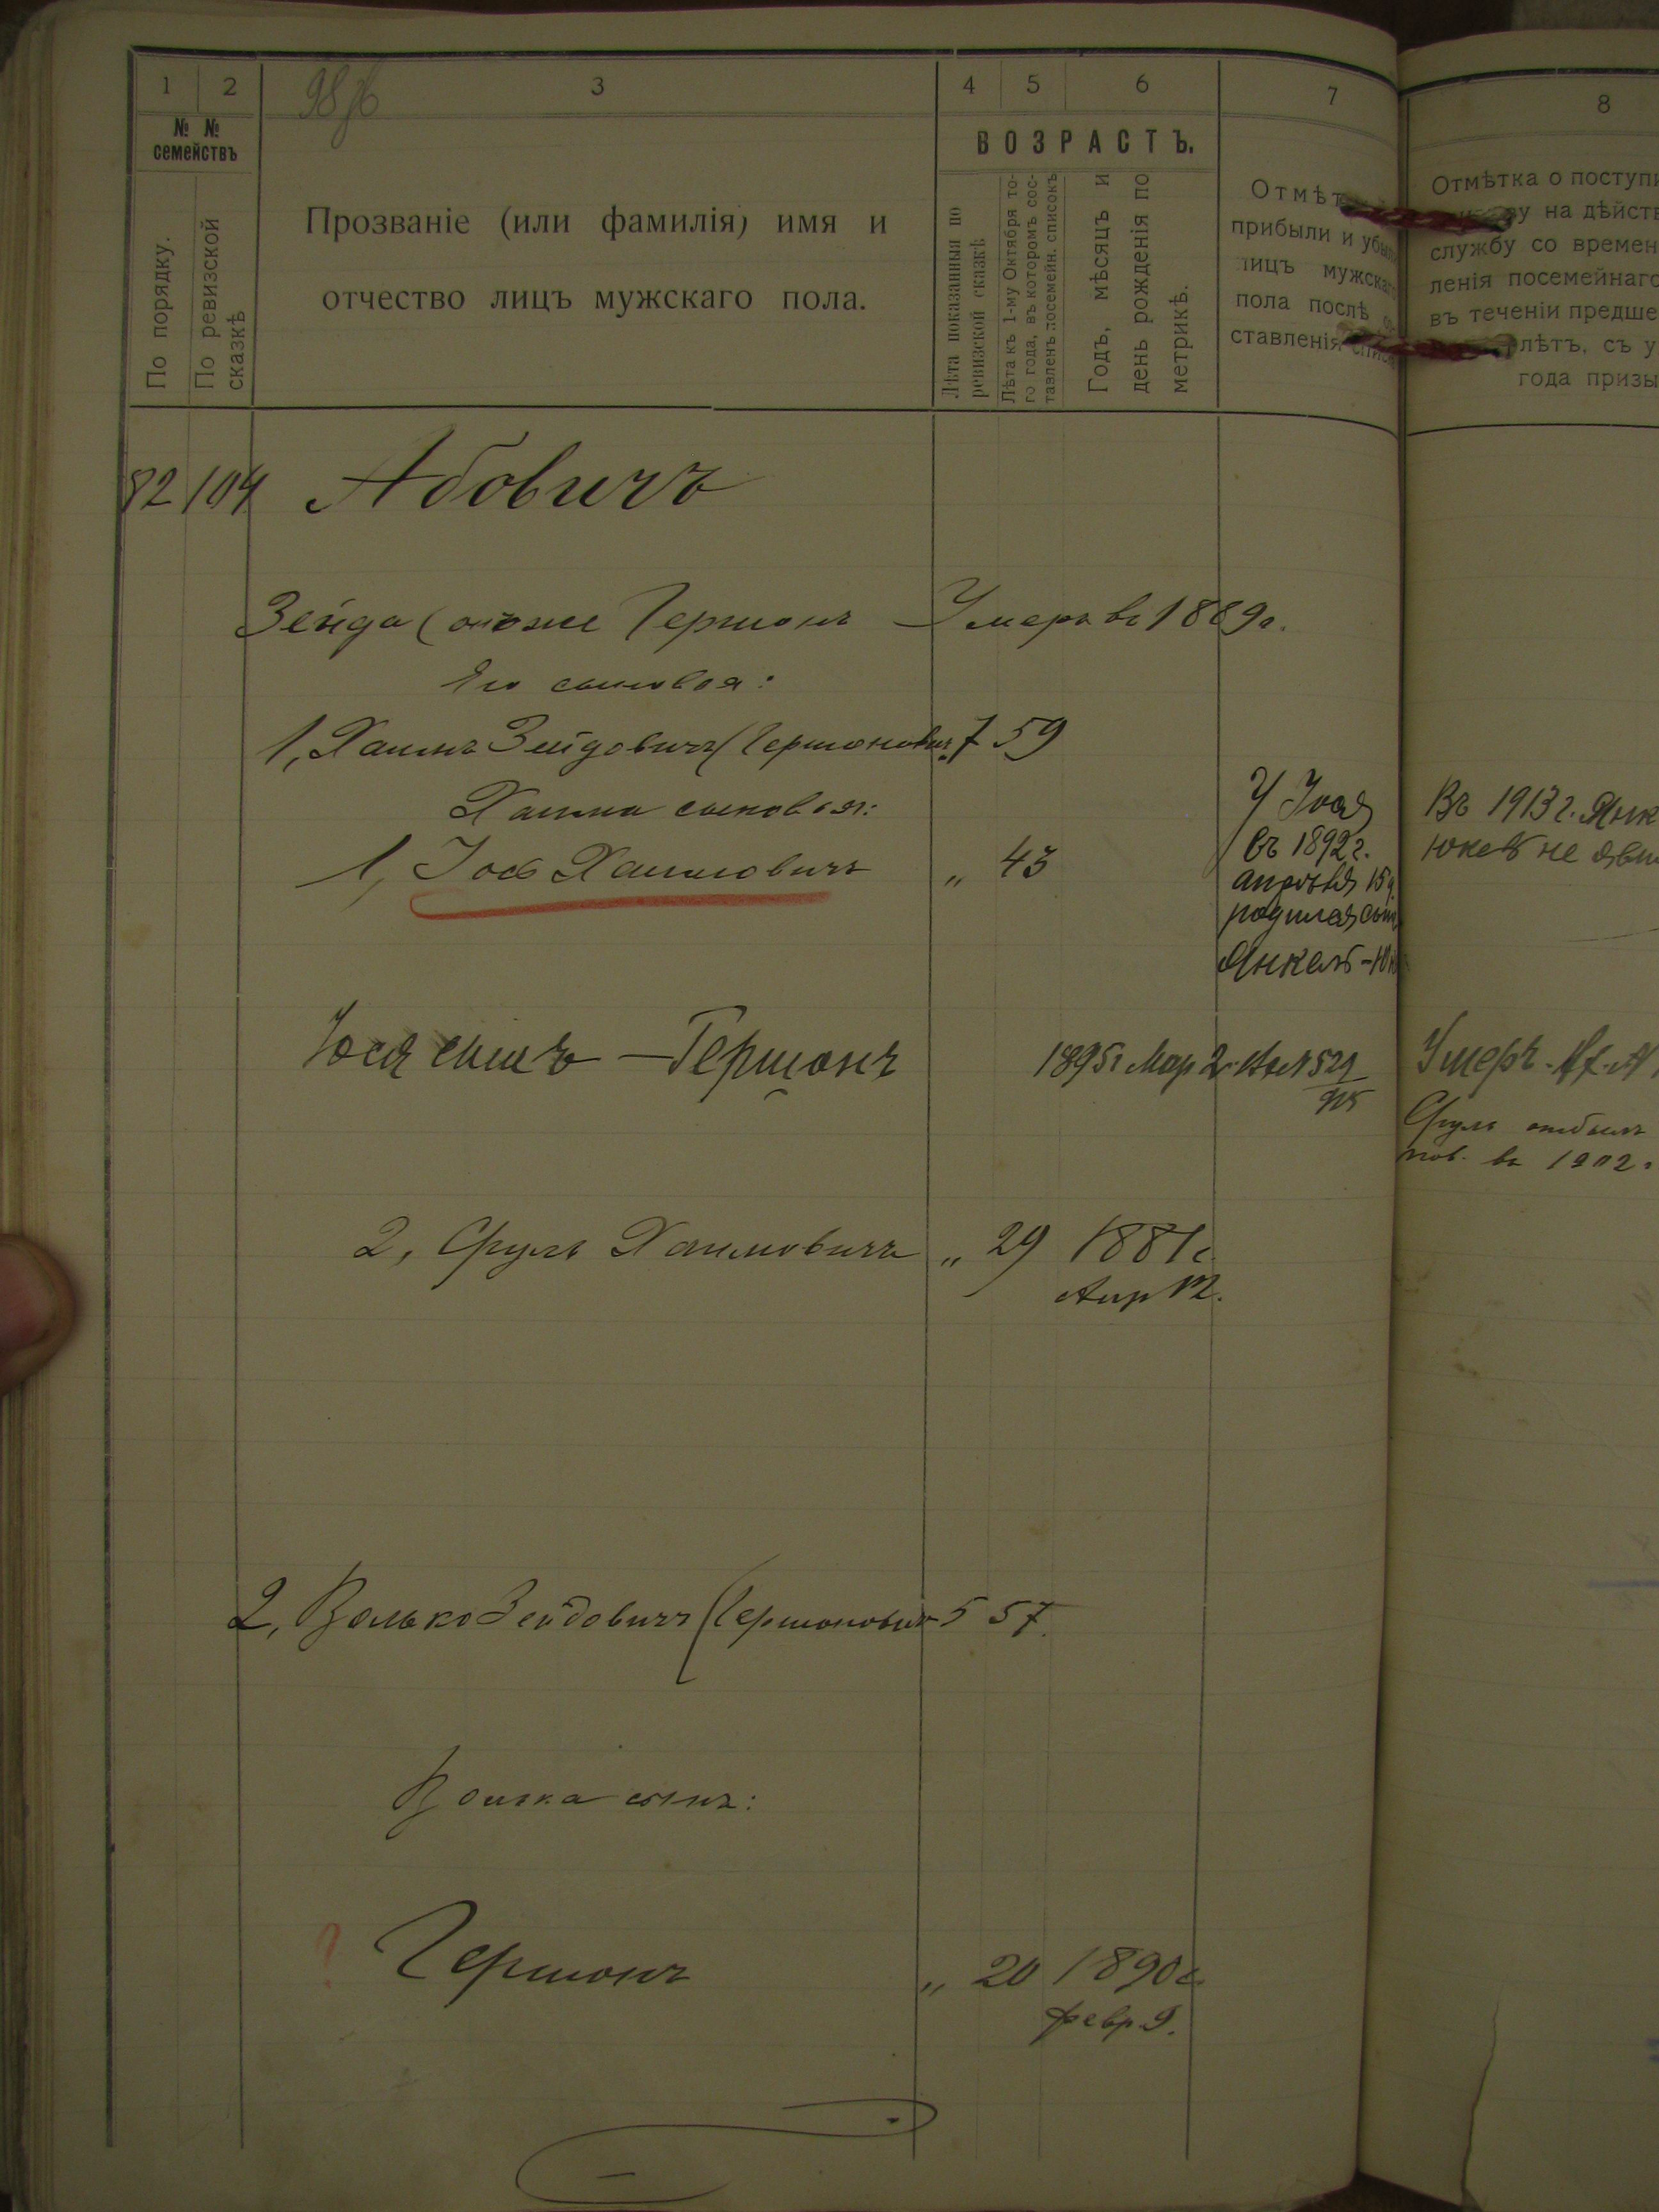 1 2 3 4 5 6 7 8
98
№ №
семействъ
По порядку.
По ревизской
сказкѣ
Прозваніе (или фамилія) имя и
отчество лицъ мужскаго пола.
ВОЗРАСТЪ.
Лѣта показанныя по
ревизской сказкѣ
Лѣта къ 1-му Октября то-
го года, въ которомъ сос-
тавленъ посемейн. списокъ
Годъ, мѣсяцъ и
день рожденія по
метрикѣ.
Отмѣт
прибыли и убыли
лицъ мужскаго
пола послѣ со
ставленія списк
Отмѣтка о поступи
ву на дѣйств
службу со времен
ленія посемейнаго
въ теченіи предше
лѣтъ, съ у
года призы
82 104 Абовичъ
Зейда (онъ же Гершонъ Умеръ въ 1889 г.
Его сыновья:
1, Хаимъ Зейдовичъ (Гершонович 7 59
Хаима сыновья:
1, Іос Хаимовичъ „ 43
У Іося
въ 1892 г.
апрѣля 15 д.
родился сын
Янкель-Ю
Въ 1913 г. Янк
Юкеб не яви
Іося сынъ — Гершонъ 1895 г Мар 2 521
Умеръ
Сруль отбылъ
пов. въ 1902 г
2, Сруль Хаимовичъ „ 29 1881 г.
Апр 12.
2, Волько Зейдовичъ (Гершонович 5 57.
Волька сынъ:
? Гершонъ „ 20 1890 г.
февр. 9.